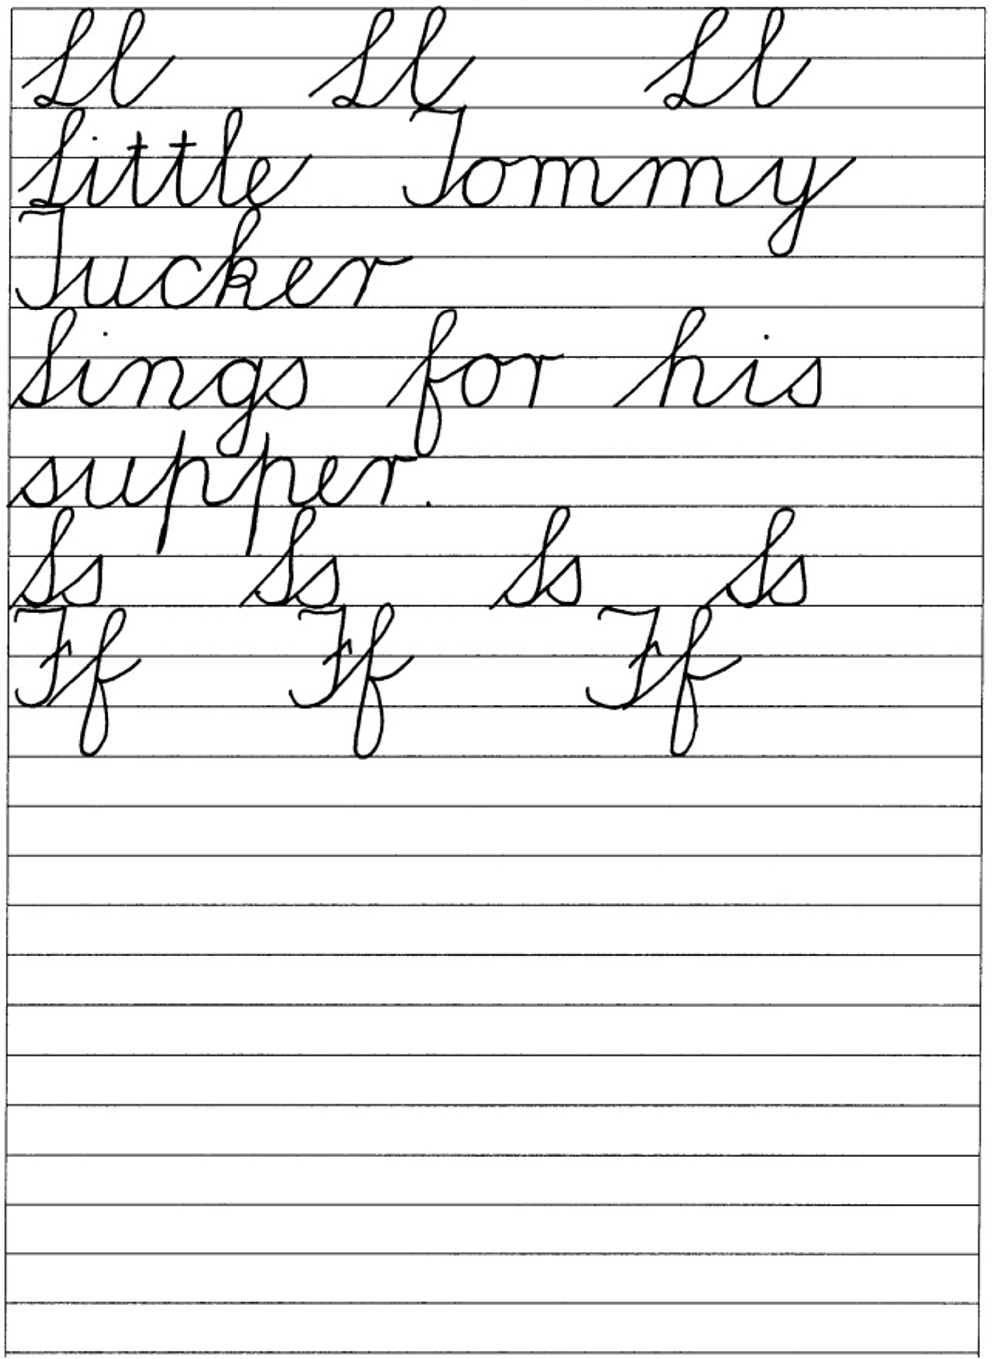 Ll Ll Ll
Little Tommy
Tucker
Sings for his
supper.
Ss Ss Ss Ss
Ff Ff Ff